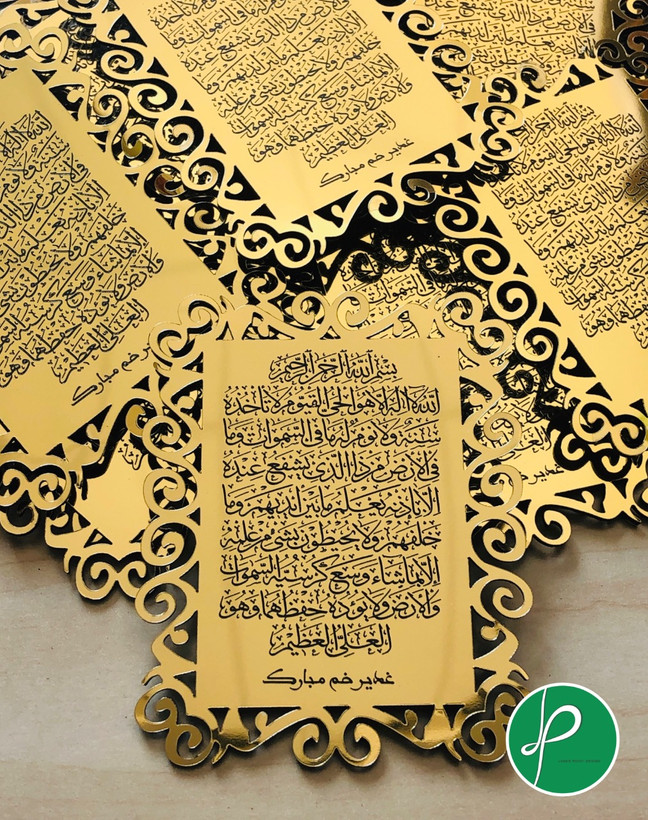 بسم الله الرحمن الرحيم
الله لا اله الا هو الحي القيوم لا تأخذه
سنة ولا نوم له ما في السموات وما
في الارض من ذا الذي يشفع عنده
الا باذنه يعلم ما بين ايديهم وما
خلفهم ولا يحيطون بشيء من علمه
الا بما شاء وسع كرسيه السموات
والارض ولا يؤده حفظهما وهو
العلي العظيم
غدیر خم مبارک